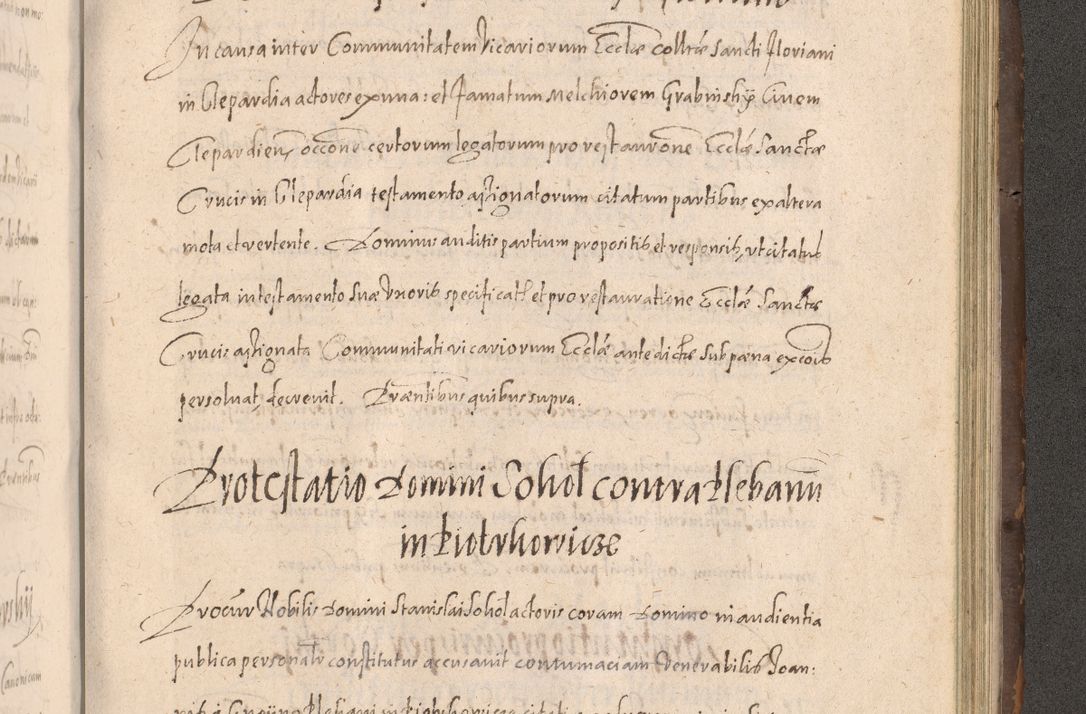 In causa inter Communitatem Vicariorum Eccłæ collræ Sancti Floriani
in Clepardia actores ex una: et Famatum Melchiorem Grabinskÿ Civem
Clepardien, occõne certorum legatorum pro restaurõne Ecclæ Sanctæ
Crucis in Clepardia testamento assignatorum citatum partibus ex altera
mota et vertente. Dominus auditis partium propositis et responsis, ut citatus
legata in testamento suæ uxoris specificata et pro restauratione Ecclæ Sanctæ
Crucis assignata Communitati vicariorum Ecclæ antedictæ sub pæna excõis
persolvat, decrevit. Præntibus quibus supra.
Protestatio Domini Sokoł contra Plebanũ
in Piotrkowicze
Procur Nobilis Domini Stanislai Sokoł actoris coram Domino in audientia
publica personalr constitutus accusavit contumaciam Venerabilis Joan:
Plebani in